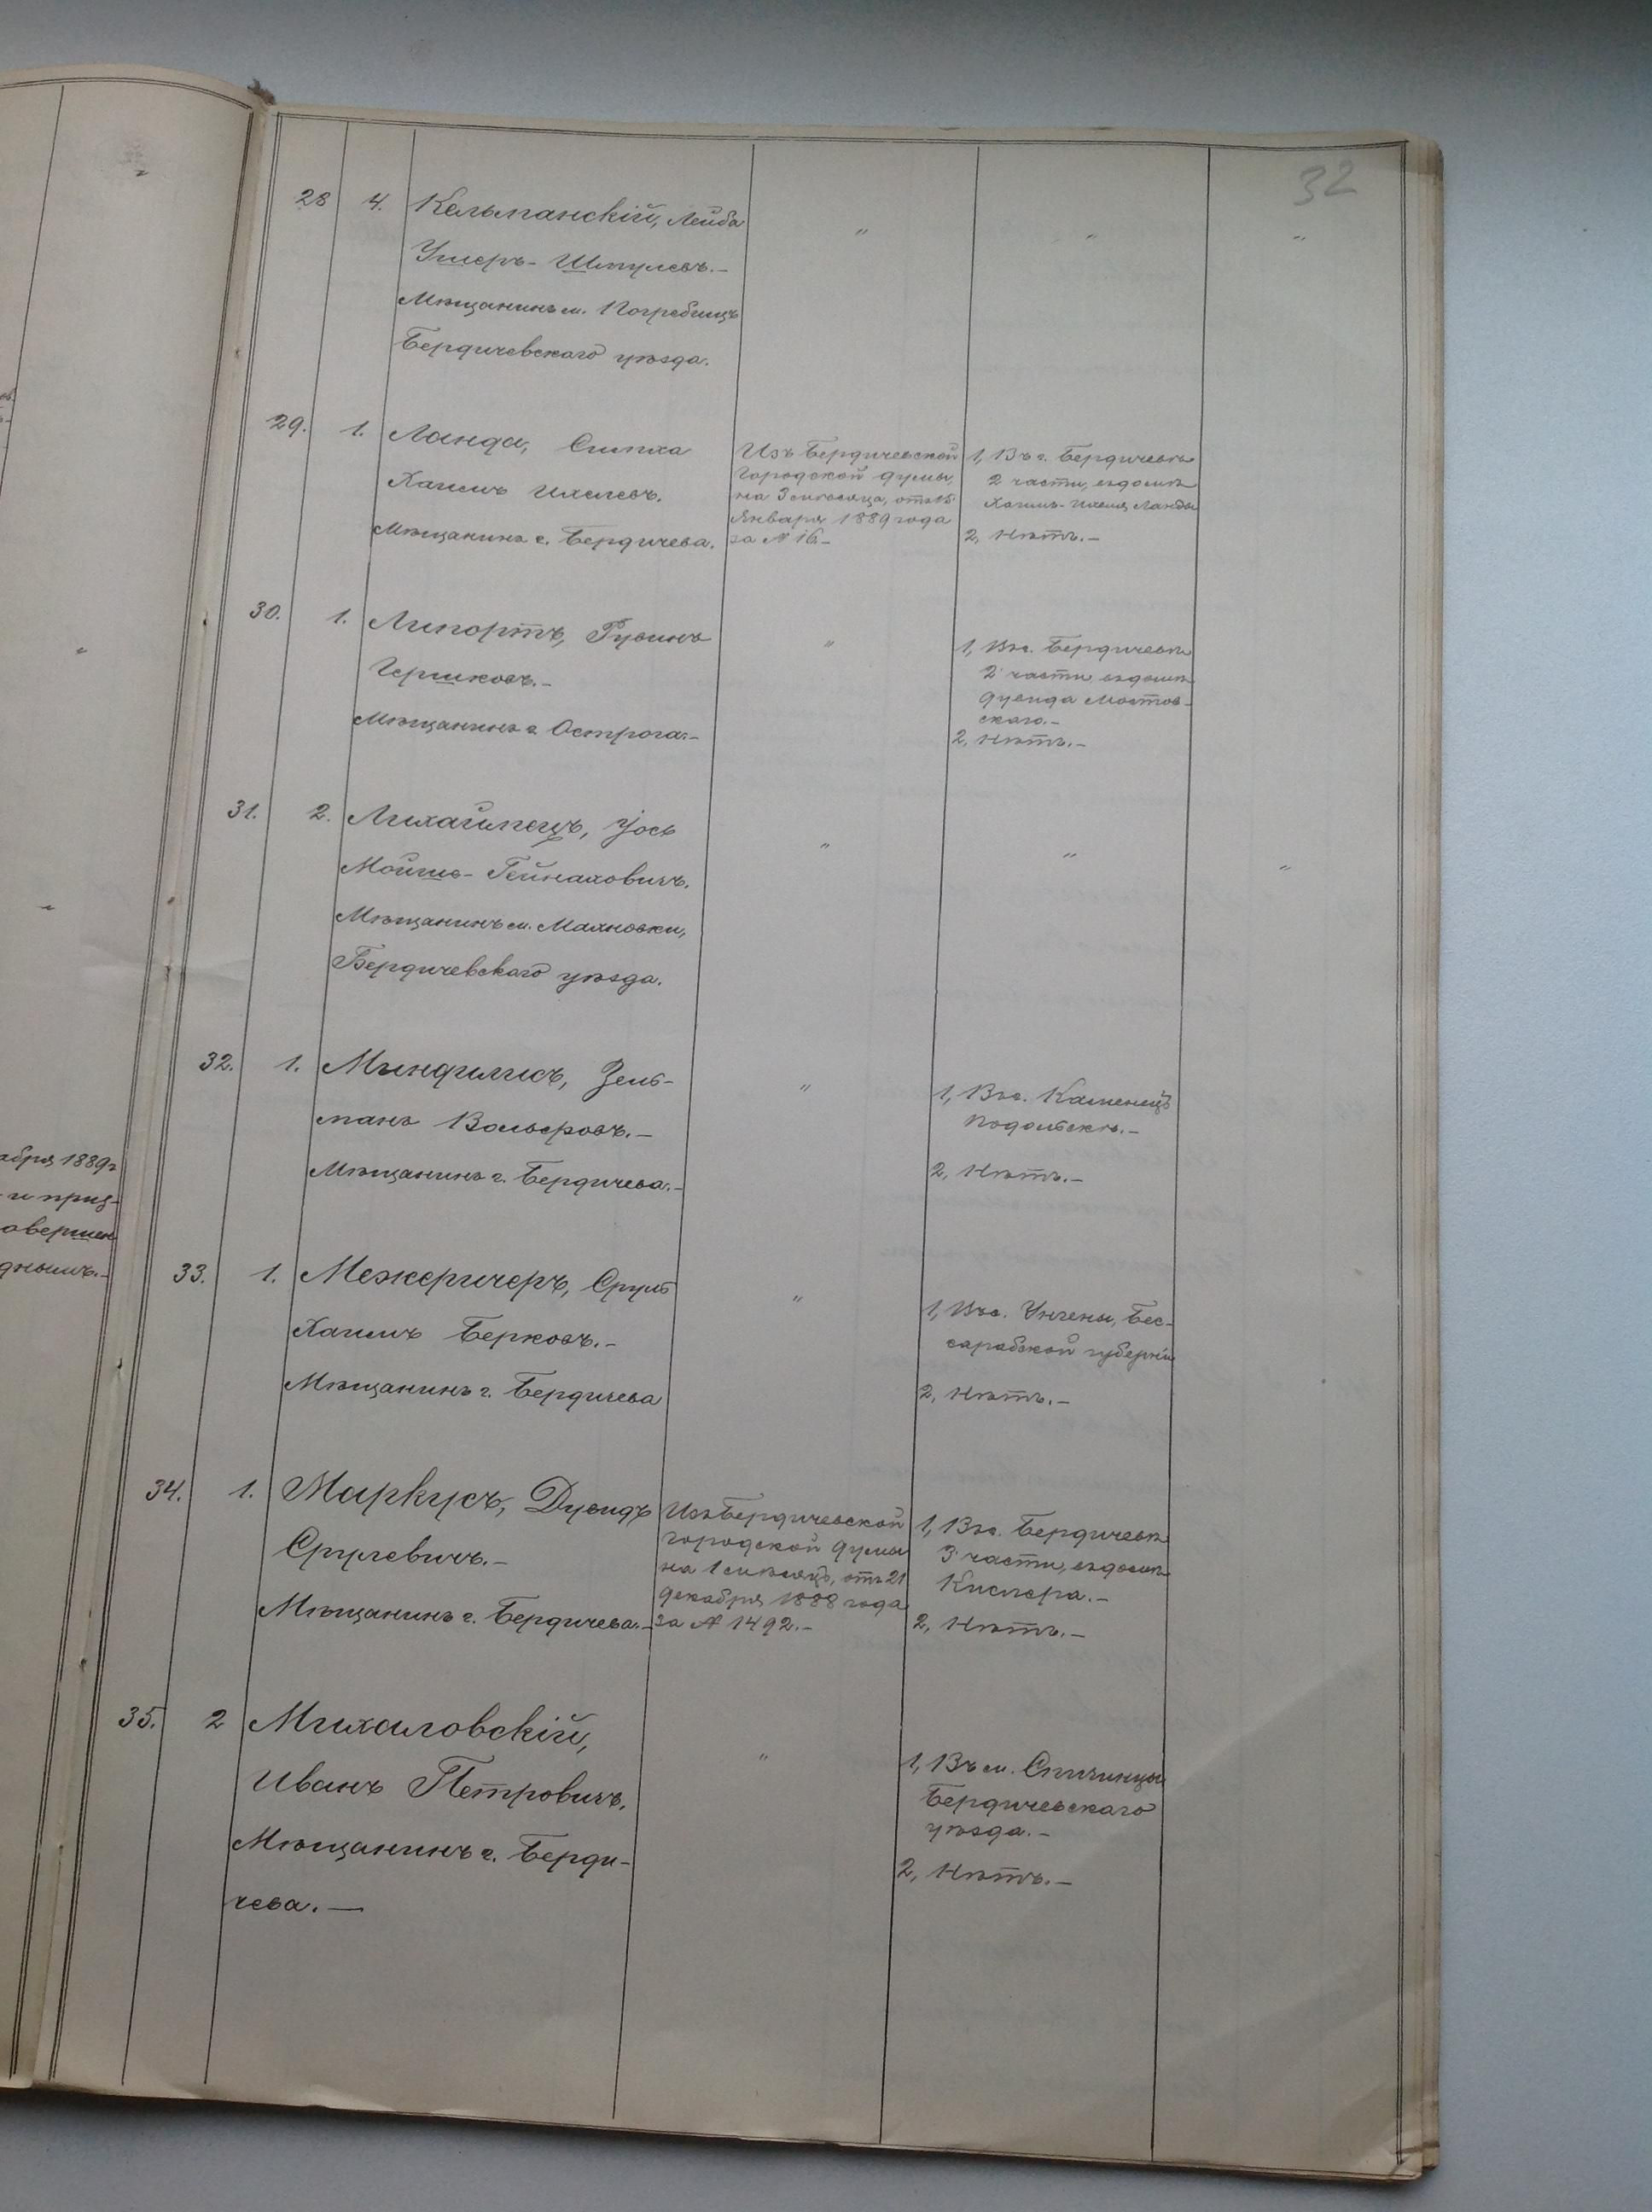 32
28 4. Кельманскій, Лейба
Ушеръ-Шмулевъ.-
Мѣщанинъ м. Погребищъ
Бердичевскаго уѣзда.
" " "
29. 1. Ланда, Симха
Хаимъ Ихелевъ.
Мѣщанинъ г. Бердичева.
Изъ Бердичевской
городской думы,
на 3 мѣсяца, отъ 15
Января 1889 года
за № 16.-
1, Въ г. Бердичевѣ
2 части, въ домѣ
Хаимъ-Ихеля Ланды
2, Нѣтъ.-
30. 1. Липортъ, Рувинъ
Гершковъ.-
Мѣщанинъ г. Острога.-
"
1, Въ г. Бердичевѣ
2 части, въ домѣ
Дувида Мостов-
скаго.-
2, Нѣтъ.-
31. 2. Лихайпецъ, Іось
Мойше-Гейнаховичъ.
Мѣщанинъ м. Махновки,
Бердичевскаго уѣзда.
" " "
32. 1. Миндилисъ, Зель-
манъ Вольфовъ.-
Мѣщанинъ г. Бердичева.-
"
1, Въ г. Каменецъ
Подольскѣ.-
2, Нѣтъ.-
33. 1. Межеричеръ, Сруль
Хаимъ Берковъ.-
Мѣщанинъ г. Бердичева
"
1, Въ с. Унгены, Бес-
сарабской губерніи
2, Нѣтъ.-
34. 1. Маркусъ, Дувидъ
Срулевичъ.-
Мѣщанинъ г. Бердичева.-
Изъ Бердичевской
городской думы
на 1 мѣсяцъ, отъ 21
декабря 1888 года
за № 1492.-
1, Въ г. Бердичевѣ
3 части, въ домѣ
Кислера.-
2, Нѣтъ.-
35. 2 Михаловскій,
Иванъ Петровичъ.
Мѣщанинъ г. Берди-
чева.-
"
1, Въ м. Спичинцы
Бердичевскаго
уѣзда.-
2, Нѣтъ.-
абря 1889 г